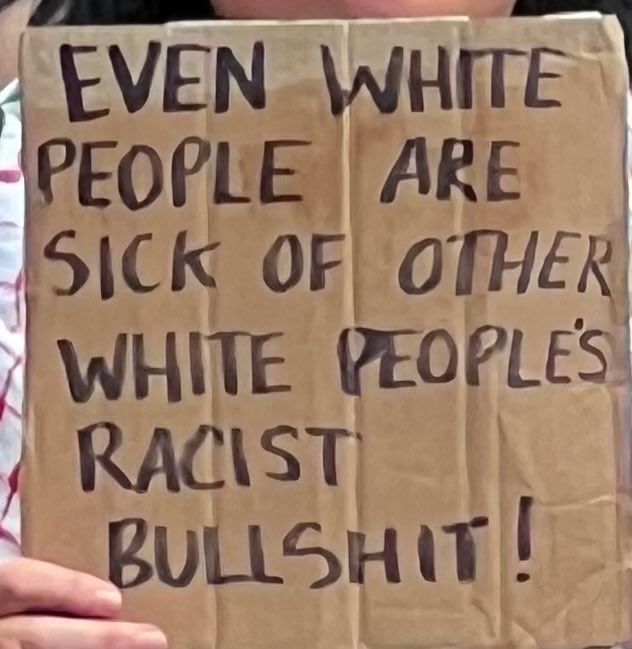 EVEN WHITE
PEOPLE ARE
SICK OF OTHER
WHITE PEOPLE'S
RACIST
BULLSHIT!